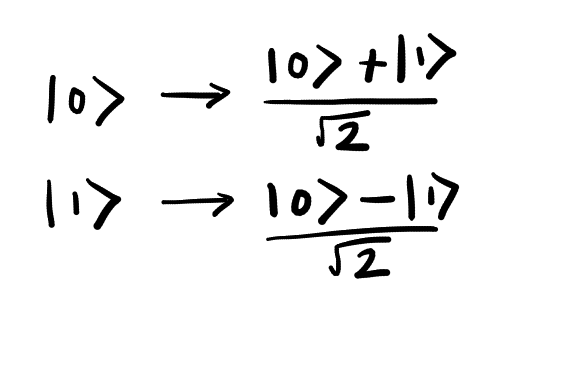 |0⟩ → (|0⟩ + |1⟩)/√2
|1⟩ → (|0⟩ − |1⟩)/√2